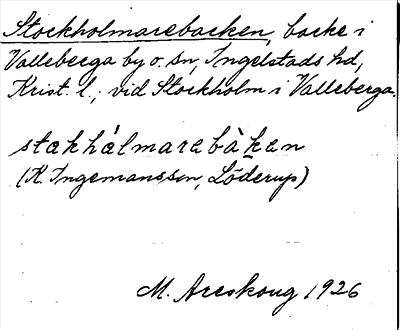 Stockholmarebacken, backe i
Valleberga by o. sn, Ingelstads hd,
Krist. l., vid Stockholm i Valleberga.
stækhálmarebàken
(K. Ingemansson, Löderup)
M. Areskoug 1926